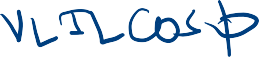 VLILCosφ